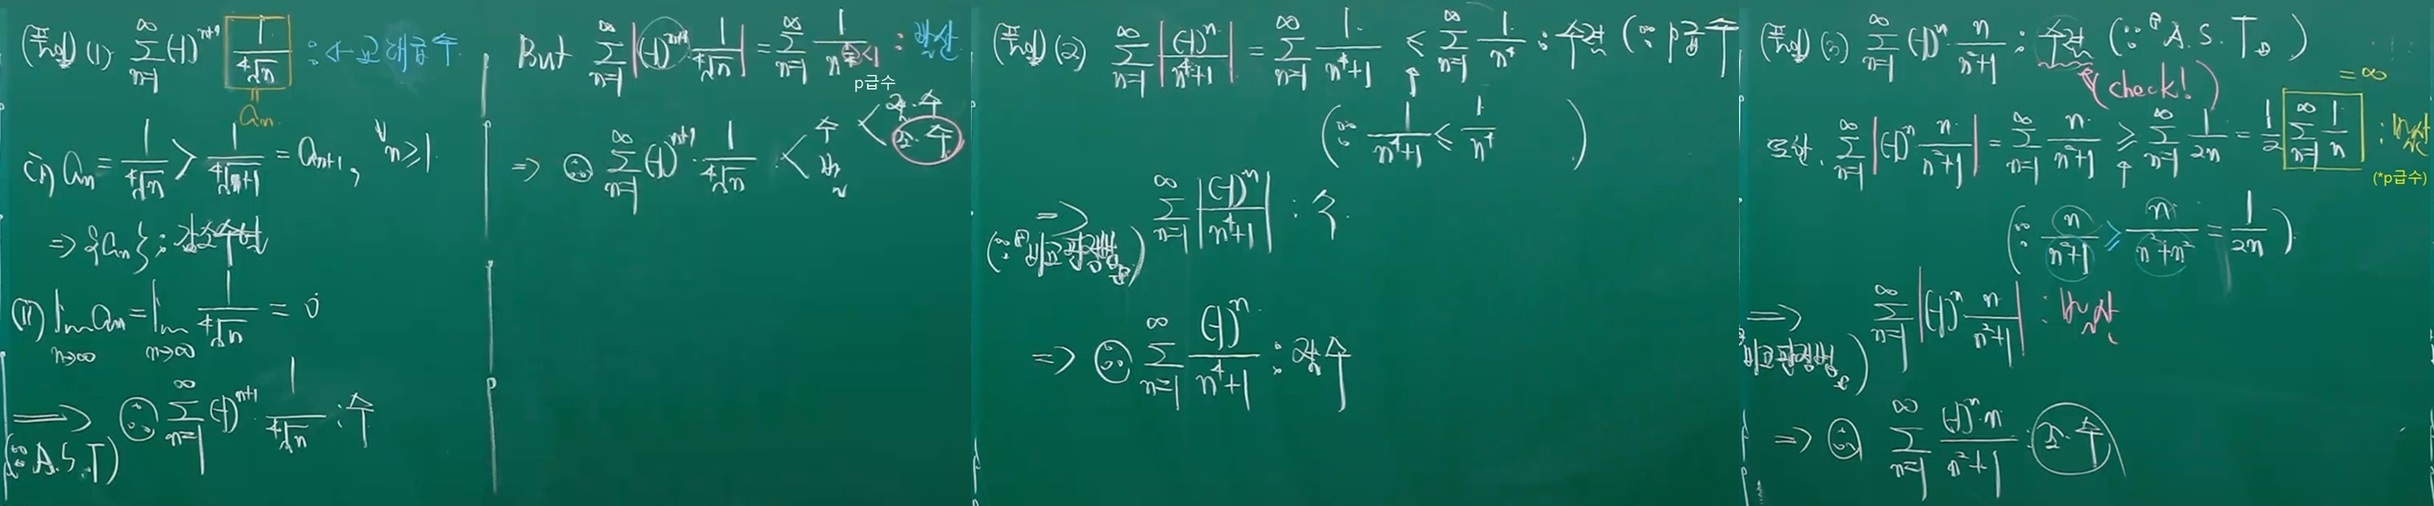 (풀이) (1) ∑_{n=1}^{∞} (-1)^{n+1} 1/∜n : 수교대급수
a_n
(i) a_n = 1/∜n > 1/∜(n+1) = a_{n+1}, ∀n≥1
⇒ {a_n} : 감소수열
(ii) lim_{n→∞} a_n = lim_{n→∞} 1/∜n = 0
⇒ ∴ ∑_{n=1}^{∞} (-1)^{n+1} · 1/∜n : 수
(∵ A.S.T)
But ∑_{n=1}^{∞} |(-1)^{n+1} 1/∜n| = ∑_{n=1}^{∞} : 발산
p급수
⇒ ∴ ∑_{n=1}^{∞} (-1)^{n+1} · 1/∜n < 수 < 절·수
발 조·수
(풀이) (2) ∑_{n=1}^{∞} |(-1)^n/(n⁴+1)| = ∑_{n=1}^{∞} 1/(n⁴+1) ≤ ∑_{n=1}^{∞} 1/n⁴ : 수렴 (∵ p급수
(∵ 1/(n⁴+1) ≤ 1/n⁴ )
⇒ ∑_{n=1}^{∞} |(-1)^n/(n⁴+1)| : 수
(∵ 비교판정법)
⇒ ∴ ∑_{n=1}^{∞} (-1)^n/(n⁴+1) : 절수
(풀이) (3) ∑_{n=1}^{∞} (-1)^n n/(n²+1) : 수렴 (∵ A.S.T)
(check!)
= ∞
또한, ∑_{n=1}^{∞} |(-1)^n n/(n²+1)| = ∑_{n=1}^{∞} n/(n²+1) ≥ ∑_{n=1}^{∞} 1/2n = 1/2 ∑_{n=1}^{∞} 1/n : 발산
(*p급수)
(∵ n/(n²+1) ≥ n/(n²+n²) = 1/2n)
⇒ ∑_{n=1}^{∞} |(-1)^n n/(n²+1)| : 발산
비교판정법)
⇒ ∴ ∑_{n=1}^{∞} (-1)^n·n/(n²+1) : 조·수